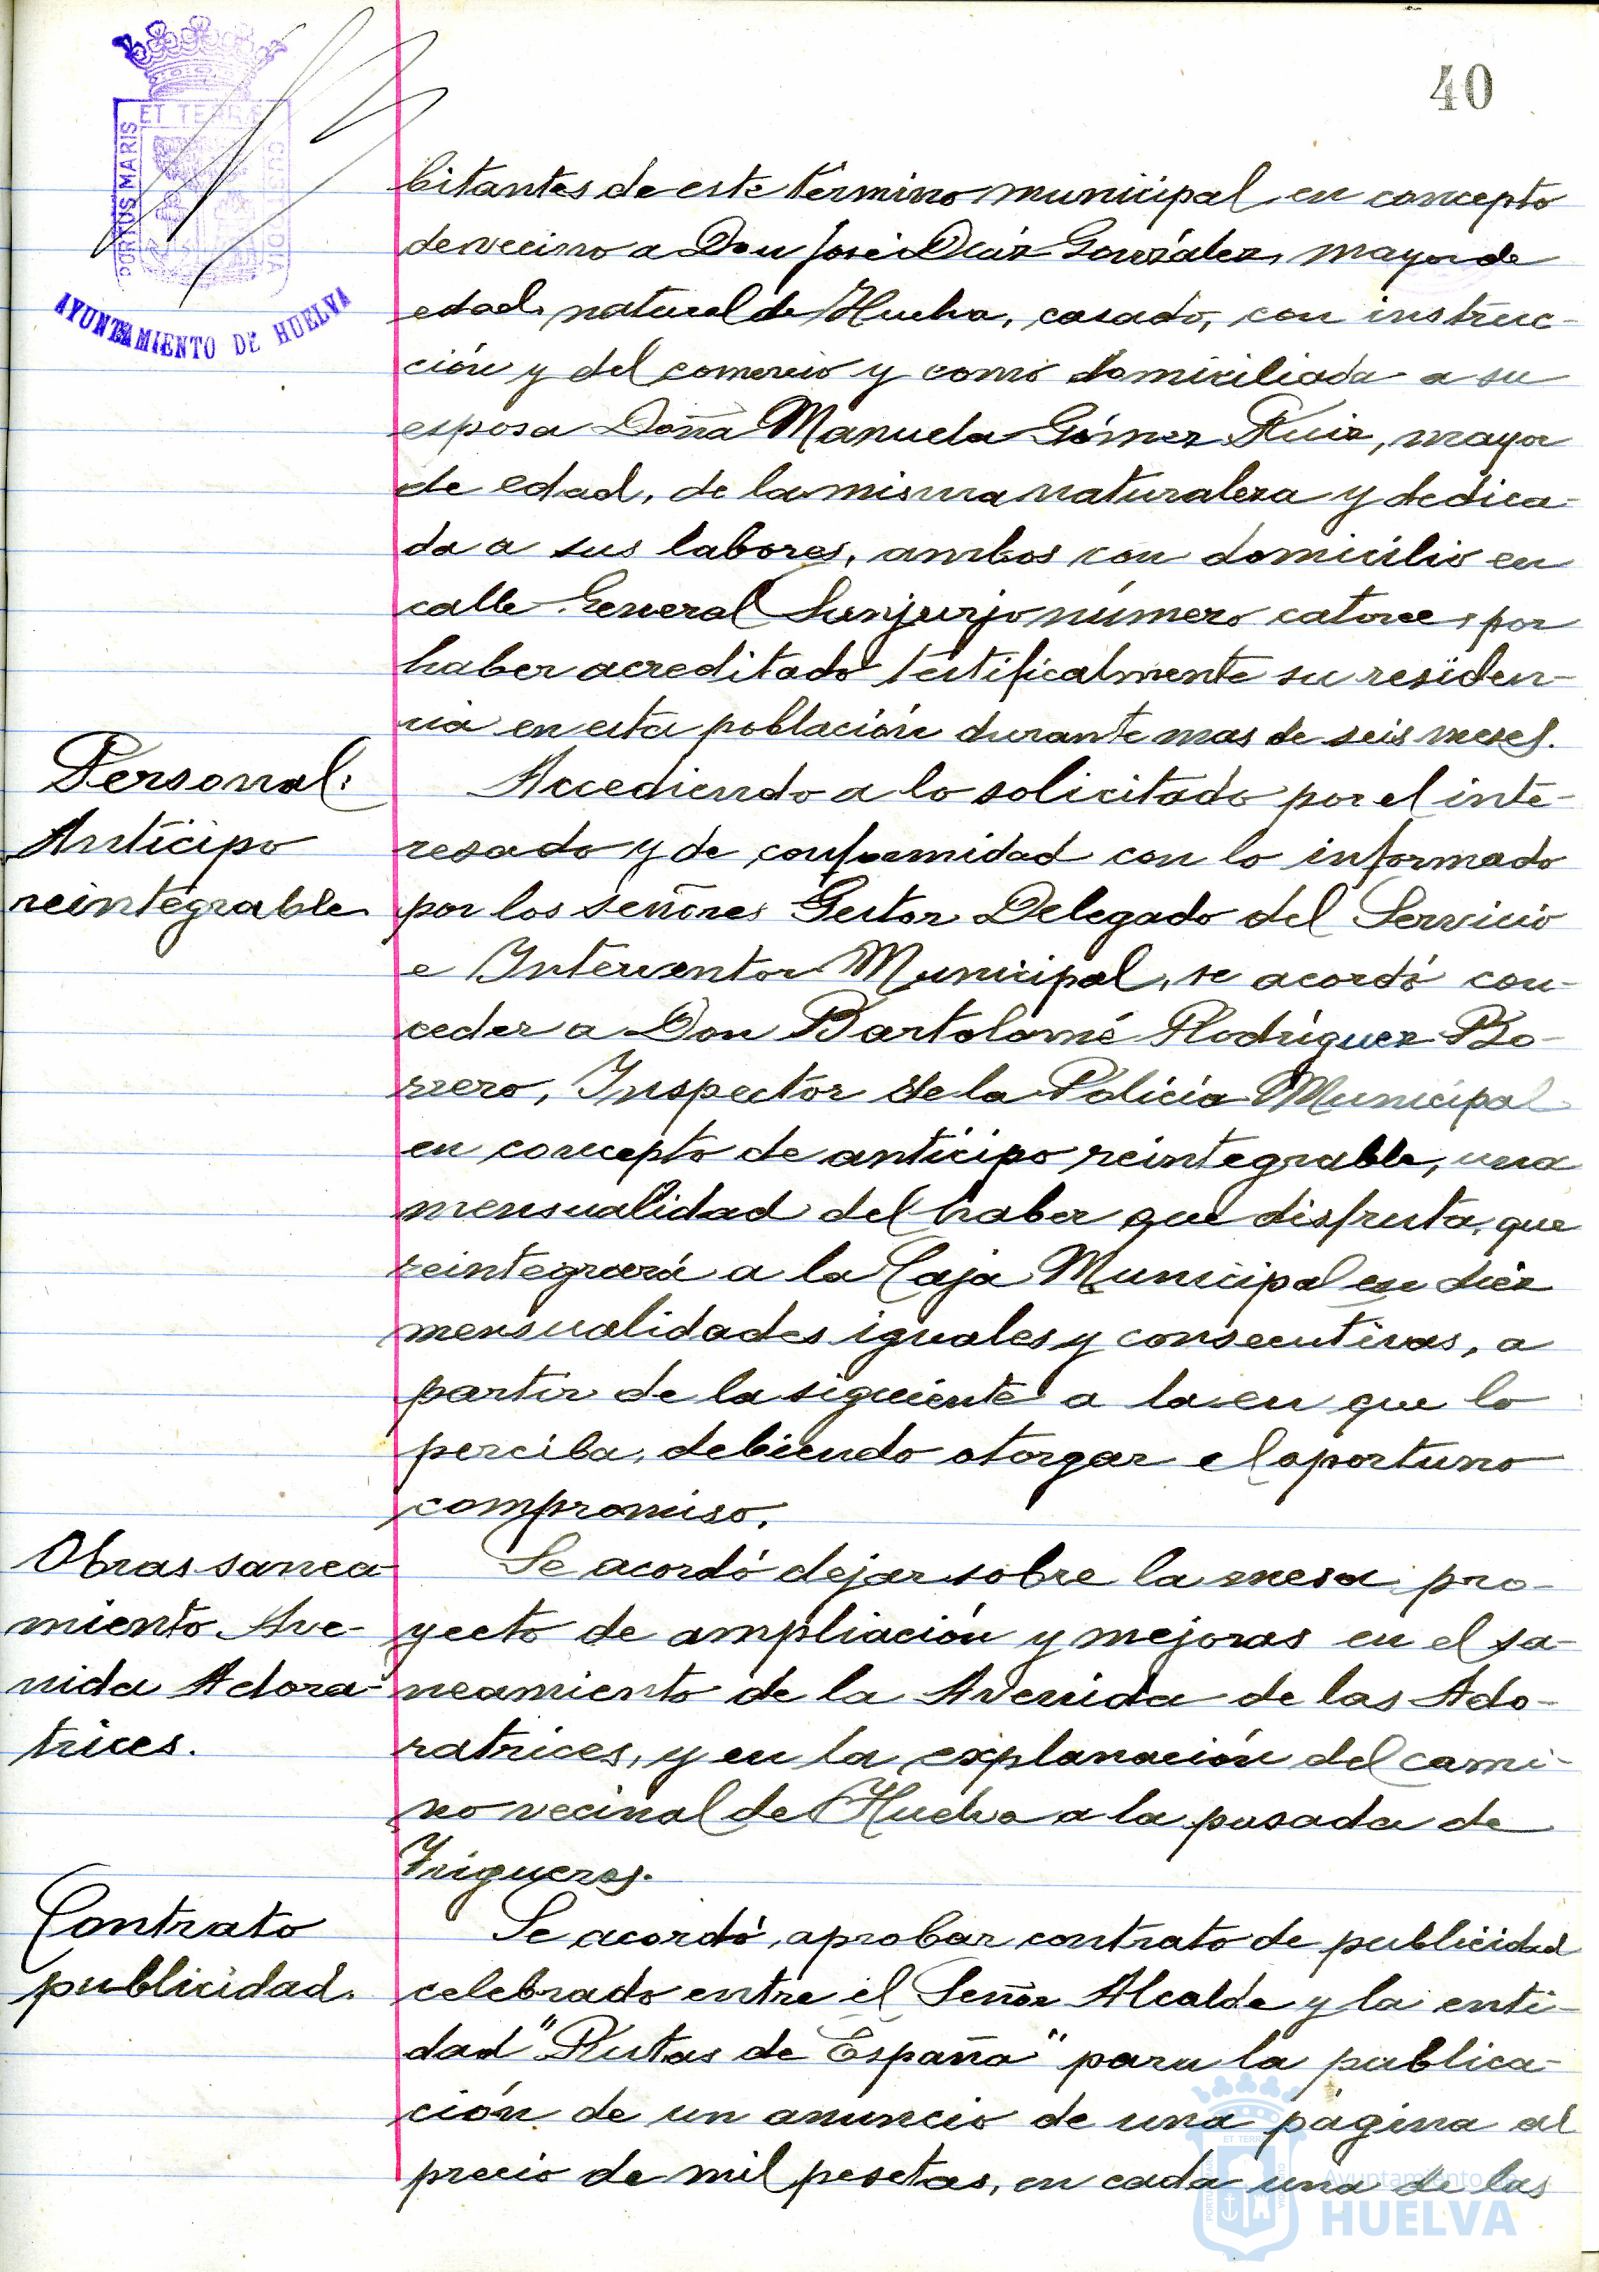 40
ET TERRÆ
PORTUS MARIS
CUSTODIA
AYUNTAMIENTO DE HUELVA
bitantes de este término municipal en concepto
de vecino a Don José Díaz González, mayor de
edad, natural de Huelva, casado, con instruc-
ción y del comercio y como domiciliada a su
esposa Doña Manuela Gómez Ruiz, mayor
de edad, de la misma naturaleza y dedica-
da a sus labores, ambos con domicilio en
calle General Sanjurjo número catorce, por
haber acreditado testificalmente su residen-
cia en esta población durante mas de seis meses.
Personal:
Anticipo
reintegrable
Accediendo a lo solicitado por el inte-
resado y de conformidad con lo informado
por los señores Gestor Delegado del Servicio
e Interventor Municipal, se acordó con-
ceder a Don Bartolomé Rodríguez Bo-
rrero, Inspector de la Policía Municipal
en concepto de anticipo reintegrable, una
mensualidad del haber que disfruta, que
reintegrará a la Caja Municipal en diez
mensualidades iguales y consecutivas, a
partir de la siguiente a la en que lo
perciba, debiendo otorgar el oportuno
compromiso.
Obras sanea-
miento Ave-
nida Adora-
trices.
Se acordó dejar sobre la mesa pro-
yecto de ampliación y mejoras en el sa-
neamiento de la Avenida de las Ado-
ratrices, y en la explanación del cami-
no vecinal de Huelva a la pasada de
Trigueros.
Contrato
publicidad.
Se acordó aprobar contrato de publicidad
celebrado entre el Señor Alcalde y la enti-
dad "Rutas de España" para la publica-
ción de un anuncio de una página al
precio de mil pesetas, en cada una de las
Ayuntamiento de
HUELVA